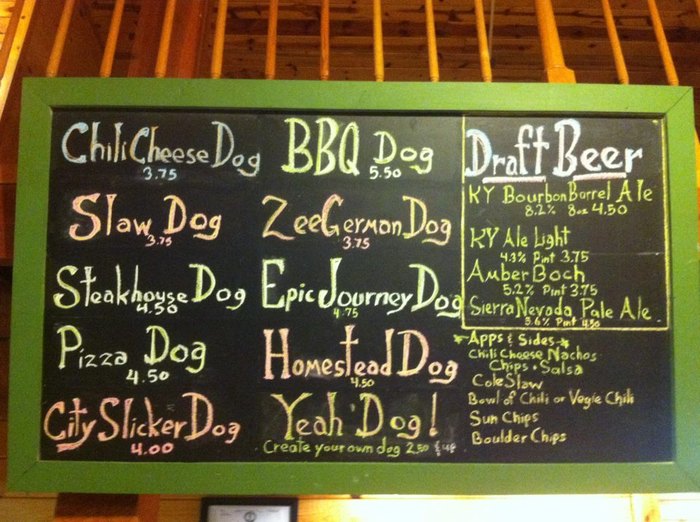 Chili Cheese Dog
3.75
Slaw Dog
3.75
Steakhouse Dog
4.50
Pizza Dog
4.50
City Slicker Dog
4.00
BBQ Dog
5.50
Zee German Dog
3.75
Epic Journey Dog
4.75
Homestead Dog
4.50
Yeah Dog!
Create your own dog 2.50 & up
Draft Beer
KY Bourbon Barrel Ale
8.2% 8oz 4.50
KY Ale Light
4.3% Pint 3.75
Amber Boch
5.2% Pint 3.75
Sierra Nevada Pale Ale
5.6% Pint 4.50
Apps & Sides
Chili Cheese Nachos
Chips & Salsa
Cole Slaw
Bowl of Chili or Vegie Chili
Sun Chips
Boulder Chips